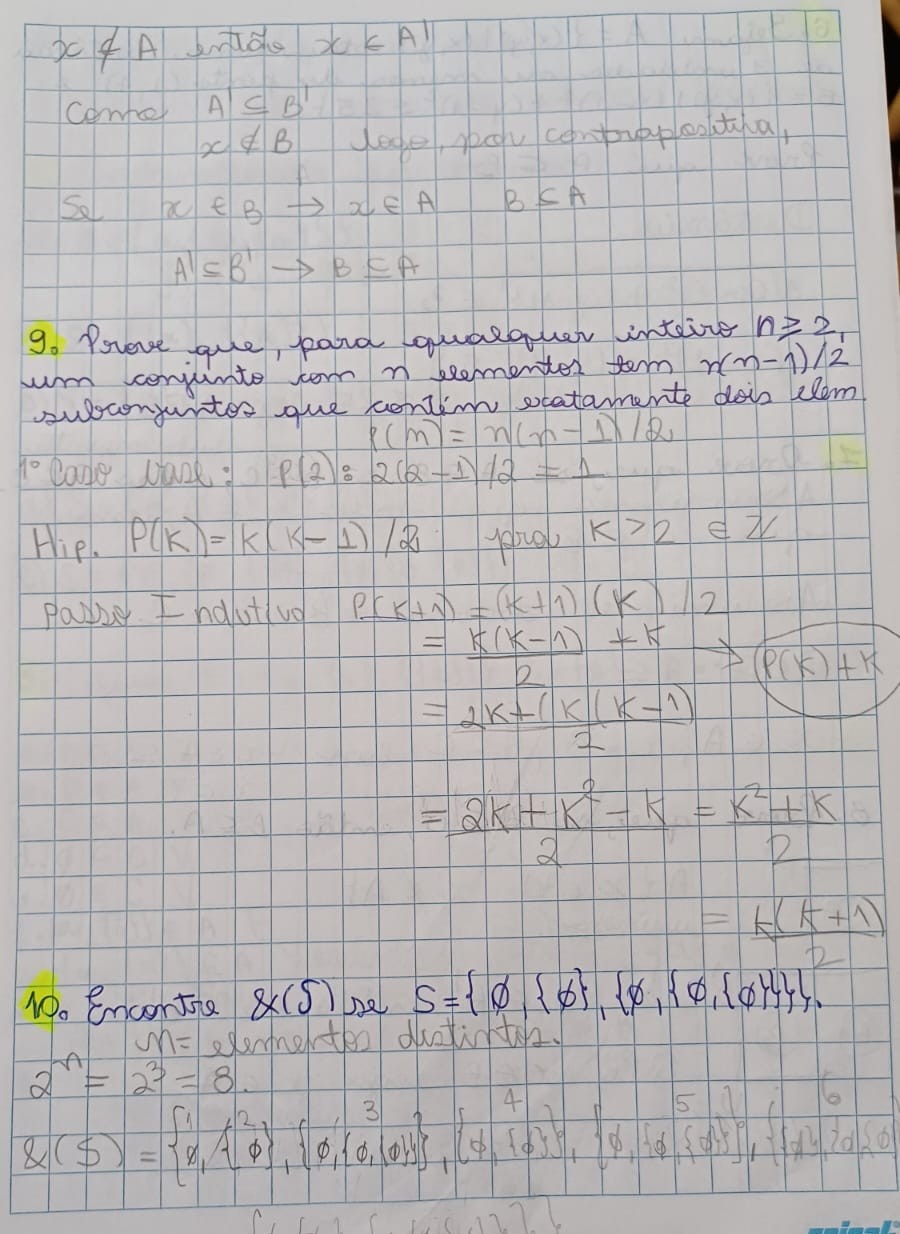 x ∉ A então x ∈ A'
Como A' ⊆ B'
x ∉ B logo, por contrapositiva,
Se x ∈ B → x ∈ A B ⊆ A
A' ⊆ B' → B ⊆ A
9. Prove que, para qualquer inteiro n ≥ 2,
um conjunto com n elementos tem n(n-1)/2
subconjuntos que contém exatamente dois elem
P(n) = n(n-1)/2
1° Caso base: P(2): 2(2-1)/2 = 1
Hip. P(K) = k(K-1)/2 para K > 2 ∈ Z
Passo Indutivo P(K+1) = (K+1)(K)/2
= K(K-1)/2 + K → P(K)+K
= 2K+(K(K-1)/2
= 2K+K²-K/2 = K²+K/2
= k(K+1)/2
10. Encontre ℘(S) se S={∅,{∅},{∅,{∅,{∅}}}}.
n = elementos distintos.
2ⁿ = 2³ = 8.
1 2 3 4 5 6
℘(S) = {∅,{∅},{∅,{∅,{∅}}},{∅,{∅}},